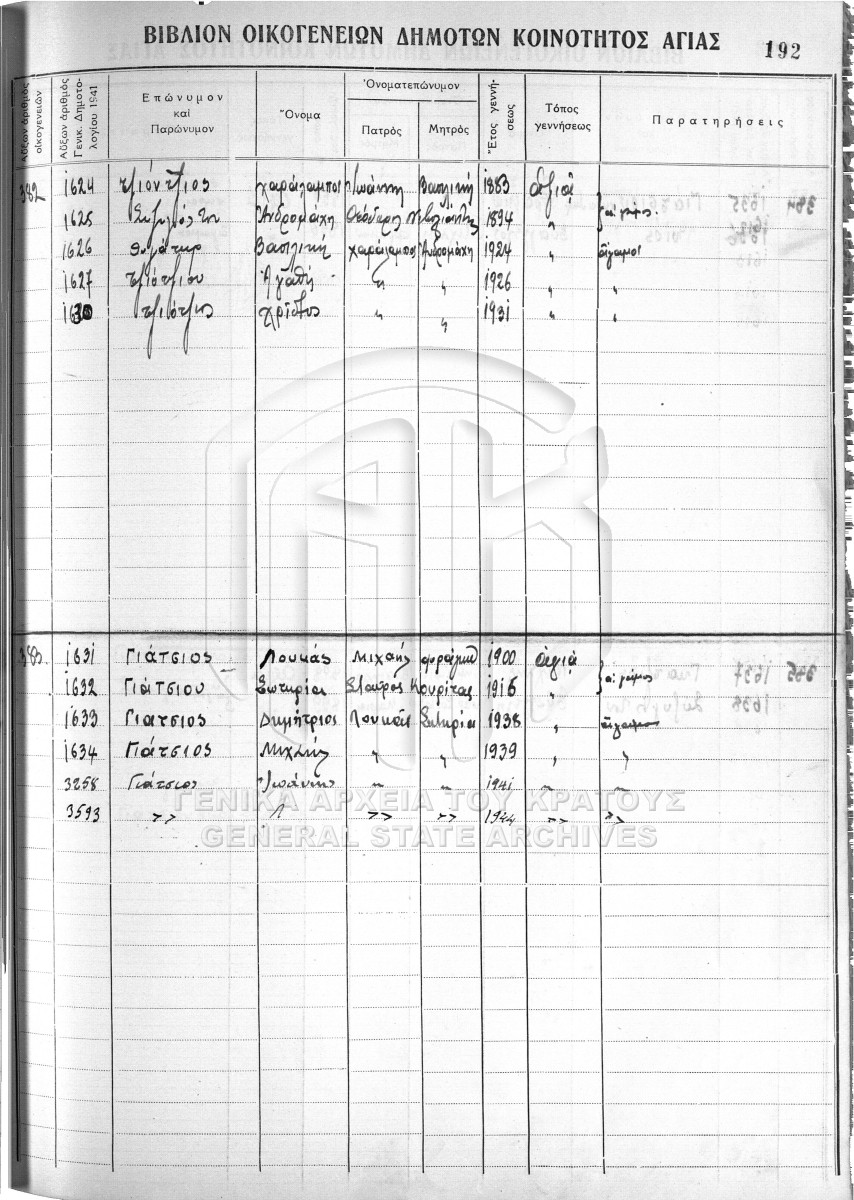 ΒΙΒΛΙΟΝ ΟΙΚΟΓΕΝΕΙΩΝ ΔΗΜΟΤΩΝ ΚΟΙΝΟΤΗΤΟΣ ΑΓΙΑΣ 192
Αὔξων ἀριθμὸς οἰκογενειῶν
Αὔξων ἀριθμὸς Γενικ. Δημοτολογίου 1941
Ἐπώνυμον καὶ Παρώνυμον
Ὄνομα
Ὀνοματεπώνυμον
Πατρός Μητρός
Ἔτος γεννήσεως
Τόπος γεννήσεως
Παρατηρήσεις
382 1624 Χαράλαμπος Ἰωάννη Βασιλική 1883 Ἁγιά
1625 Σύζυγός του Ἀνδρομάχη 1894
1626 θυγάτηρ Βασιλική Χαράλαμπος Ἀνδρομάχη 1924 " ἄγαμοι
1627 Ἀγαθή " " 1926 " "
1630 Χρῆστος " " 1931 " "
383 1631 Γιάτσιος Λουκάς Μιχαήλ 1900 Ἁγιά
1632 Γιάτσιου Σωτηρία Σταύρος Κουρίτας 1916 "
1633 Γιατσιος Δημήτριος Λουκάς Σωτηρία 1938 " ἄγαμος
1634 Γιάτσιος Μιχαήλ " " 1939 "
3258 Γιάτσιος Ἰωάννης " " 1941 " "
3593 >> >> >> 1944 >> >>
ΓΕΝΙΚΑ ΑΡΧΕΙΑ ΤΟΥ ΚΡΑΤΟΥΣ
GENERAL STATE ARCHIVES